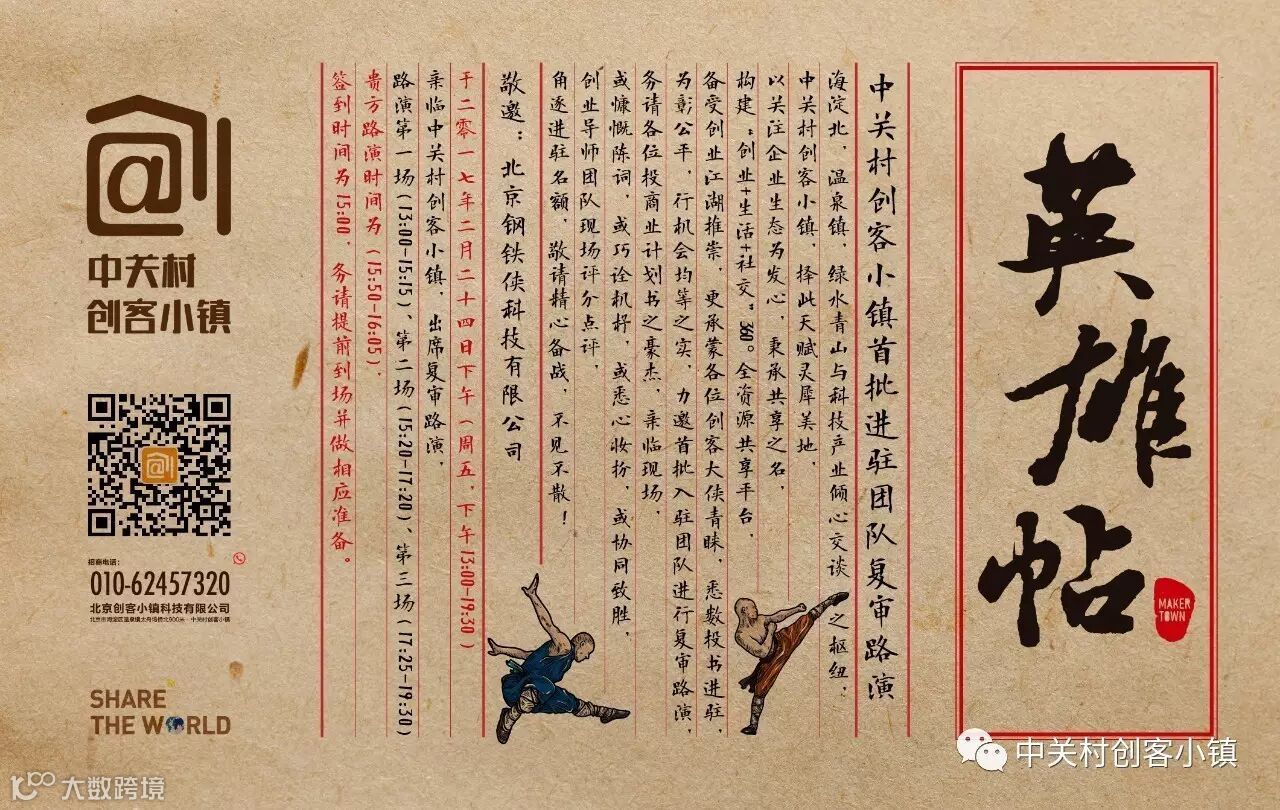 英雄帖
MAKER
TOWN
中关村创客小镇首批进驻团队复审路演
海淀北，温泉镇，绿水青山与科技产业倾心交谈之枢纽，
中关村创客小镇，择此天赋灵犀美地，
以关注企业生态为发心，秉承共享之名，
构建“创业+生活+社交”360°全资源共享平台，
备受创业江湖推崇，更承蒙各位创客大侠青睐，悉数投书进驻，
为彰公平，行机会均等之实，力邀首批入驻团队进行复审路演，
务请各位投商业计划书之豪杰，亲临现场，
或慷慨陈词，或巧诠机杼，或悉心妆扮，或协同致胜，
创业导师团队现场评分点评，
角逐进驻名额，敬请精心备战，不见不散！
敬邀：北京钢铁侠科技有限公司
于二零一七年二月二十四日下午（周五，下午13:00-19:30）
亲临中关村创客小镇，出席复审路演，
路演第一场(13:00-15:15)、第二场(15:20-17:20)、第三场(17:25-19:30)
贵方路演时间为(15:50-16:05)，
签到时间为15:00，务请提前到场并做相应准备。
@创
中关村
创客小镇
招商电话：
010-62457320
北京创客小镇科技有限公司
SHARE
THE WORLD
中关村创客小镇
大数跨境